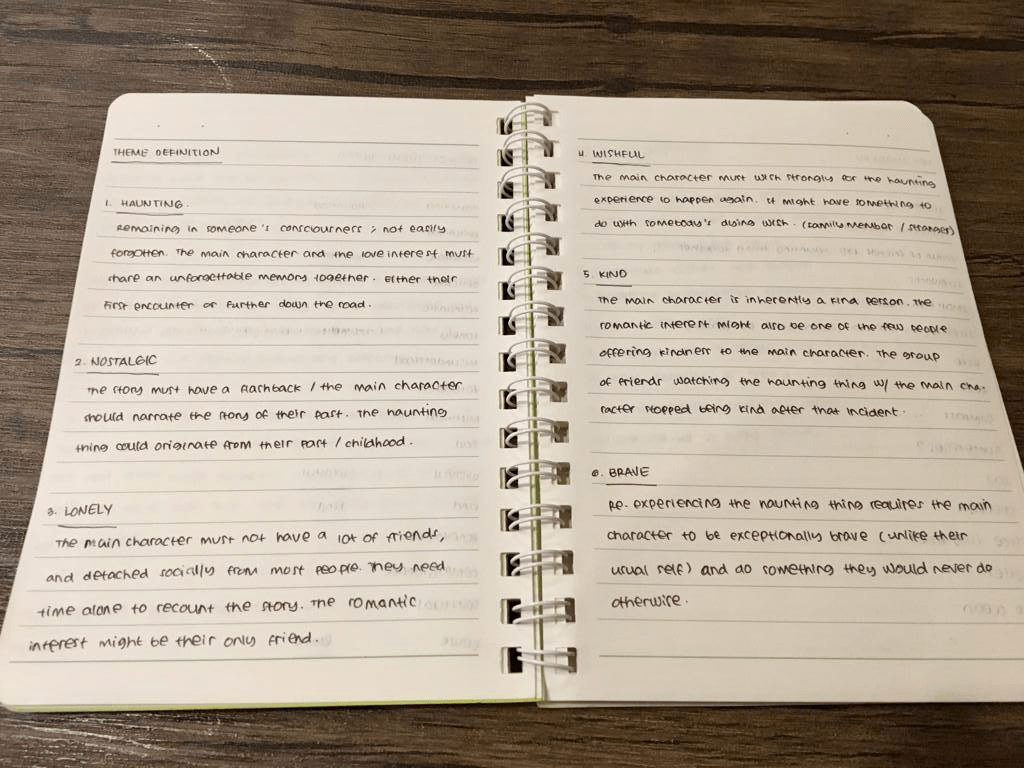 THEME DEFINITION
1. HAUNTING.
Remaining in someone's consciousness ; not easily
forgotten. The main character and the love interest must
share an unforgettable memory together. Either their
first encounter or further down the road.
2. NOSTALGIC
The story must have a flashback / the main character
should narrate the story of their past. The haunting
thing could originate from their past / childhood.
3. LONELY
The main character must not have a lot of friends,
and detached socially from most people. They need
time alone to recount the story. The romantic
interest might be their only friend.
4. WISHFUL
The main character must wish strongly for the haunting
experience to happen again. It might have something to
do with somebody's dying wish. (family member / stranger)
5. KIND
The main character is inherently a kind person. The
romantic interest might also be one of the few people
offering kindness to the main character. The group
of friends watching the haunting thing w/ the main cha-
racter stopped being kind after that incident.
6. BRAVE
Re-experiencing the haunting thing requires the main
character to be exceptionally brave (unlike their
usual self) and do something they would never do
otherwise.